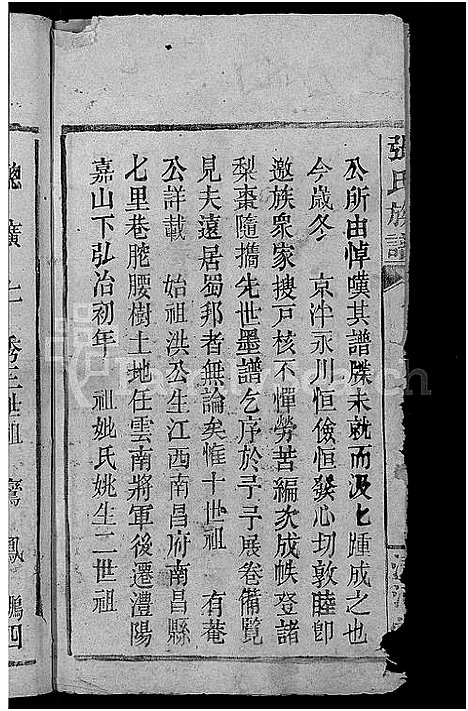 張氏族譜
公所由悼嘆其譜牒未就而汲七踵成之也
今歲冬 京洋永川恒儉恒發心切敦睦即
邀族衆家搜戸核不憚勞苦編次成帙登諸
梨棗隨攜先世墨譜乞序於予予展卷備覽
見夫遠居蜀邦者無論矣惟十世祖 有菴
公詳載 始祖洪公生江西南昌府南昌縣
七里巷腔腰樹土地任雲南將軍後遷澧陽
嘉山下弘治初年 祖妣氏姚生二世祖
總廣 仁 秀三世祖 鸞鳳鵬
四